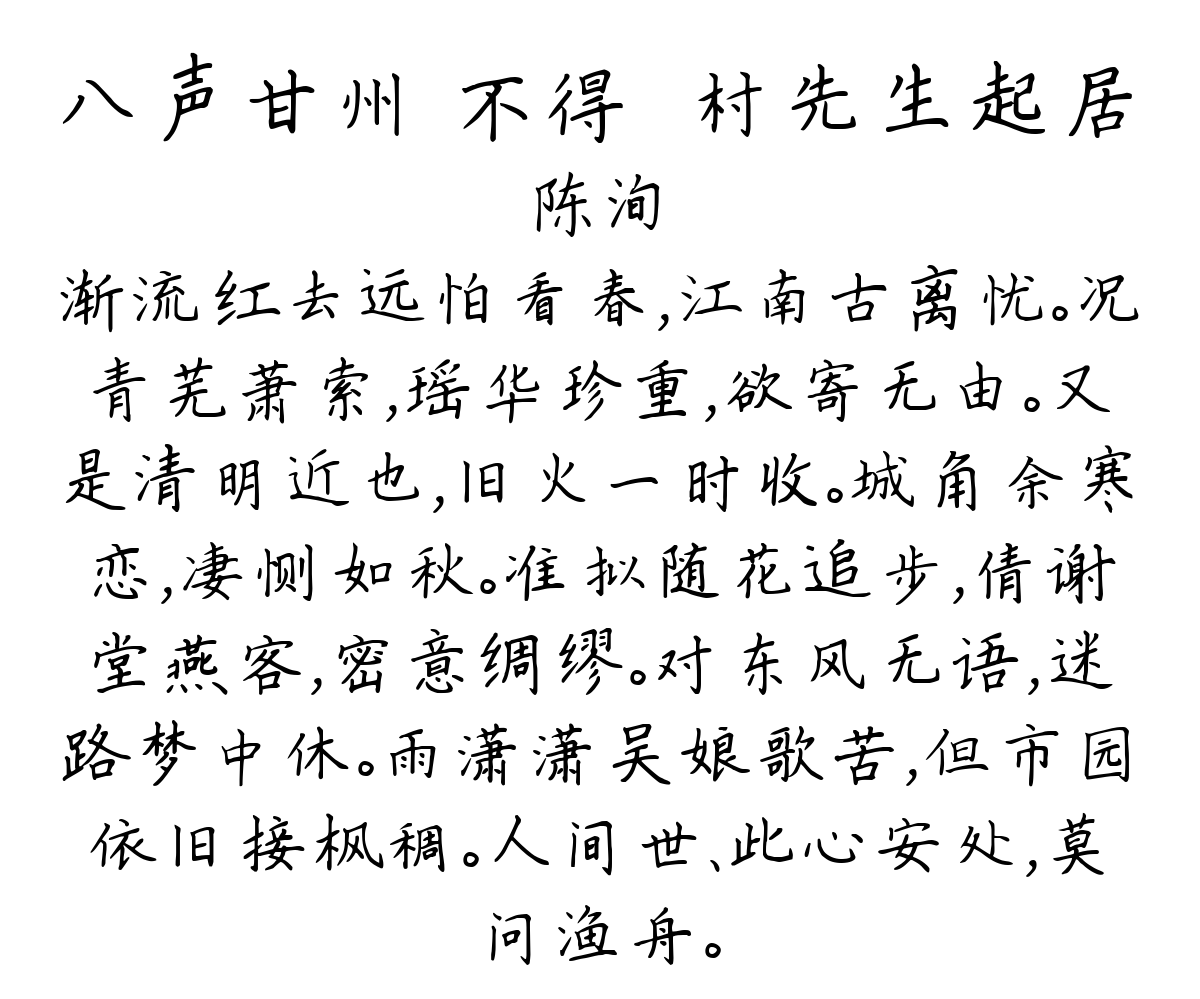 八声甘州 不得 村先生起居
陈洵
渐流红去远怕看春,江南古离忧。况
青芜萧索,瑶华珍重,欲寄无由。又
是清明近也,旧火一时收。城角余寒
恋,凄恻如秋。准拟随花追步,倩谢
堂燕客,密意绸缪。对东风无语,迷
路梦中休。雨潇潇吴娘歌苦,但市园
依旧接枫稠。人间世、此心安处,莫
问渔舟。